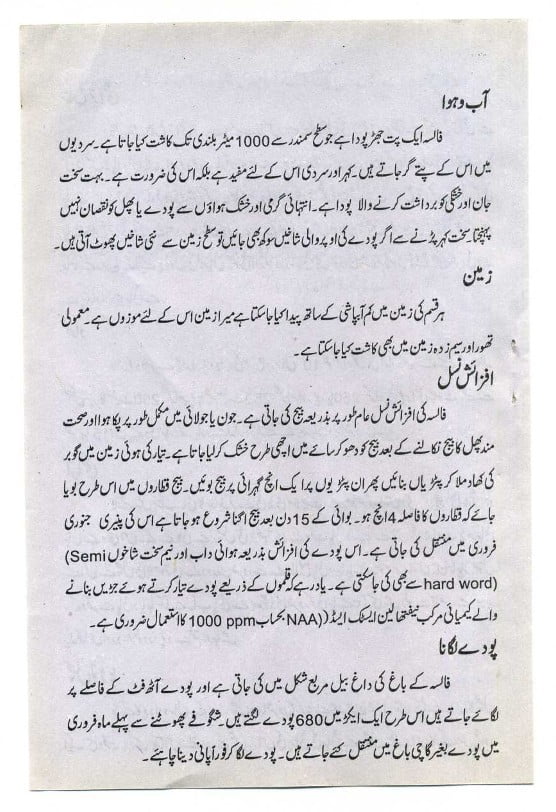 آب و ہوا
فالسہ ایک پت جھڑ پودا ہے جو سطح سمندر سے 1000 میٹر بلندی تک کاشت کیا جاتا ہے۔ سردیوں
میں اس کے پتے گر جاتے ہیں۔ کہر اور سردی اس کے لئے مفید ہے بلکہ اس کی ضرورت ہے۔ بہت سخت
جان اور خشکی کو برداشت کرنے والا پودا ہے۔ انتہائی گرمی اور خشک ہواؤں سے پودے یا پھل کو نقصان نہیں
پہنچتا سخت کہر پڑنے سے اگر پودے کی اوپر والی شاخیں سوکھ بھی جائیں تو سطح زمین سے نئی شاخیں پھوٹ آتی ہیں۔
زمین
ہر قسم کی زمین میں کم آبپاشی کے ساتھ پیدا کیا جا سکتا ہے میرا زمین اس کے لئے موزوں ہے۔ معمولی
تھور اور سیم زدہ زمین میں بھی کاشت کیا جا سکتا ہے۔
افزائش نسل
فالسہ کی افزائش نسل عام طور پر بذریعہ بیج کی جاتی ہے۔ جون یا جولائی میں مکمل طور پر پکا ہوا اور صحت
مند پھل کا بیج نکالنے کے بعد بیج کو دھو کر سائے میں اچھی طرح خشک کر لیا جاتا ہے۔ تیار کی ہوئی زمین میں گوبر
کی کھاد ملا کر پٹڑیاں بنائیں پھر ان پٹڑیوں پر ایک انچ گہرائی پر بیج بوئیں۔ بیج قطاروں میں اس طرح بویا
جائے کہ قطاروں کا فاصلہ 4 انچ ہو۔ بوائی کے 15 دن بعد بیج اگنا شروع ہو جاتا ہے اس کی پنیری جنوری
فروری میں منتقل کی جاتی ہے۔ اس پودے کی افزائش بذریعہ ہوائی داب اور نیم سخت شاخوں (Semi
hard word) سے بھی کی جا سکتی ہے۔ یاد رہے کہ قلموں کے ذریعے پودے تیار کرتے ہوئے جڑیں بنانے
والے کیمیائی مرکب نیفتھالین ایسٹک ایسڈ ((NAA بحساب 1000 ppm کا استعمال ضروری ہے۔
پودے لگانا
فالسہ کے باغ کی داغ بیل مربع شکل میں کی جاتی ہے اور پودے آٹھ فٹ کے فاصلے پر
لگائے جاتے ہیں اس طرح ایک ایکڑ میں 680 پودے لگتے ہیں۔ شگوفے پھوٹنے سے پہلے ماہ فروری
میں پودے بغیر گاچی باغ میں منتقل کئے جاتے ہیں۔ پودے لگا کر فوراً پانی دینا چاہئے۔